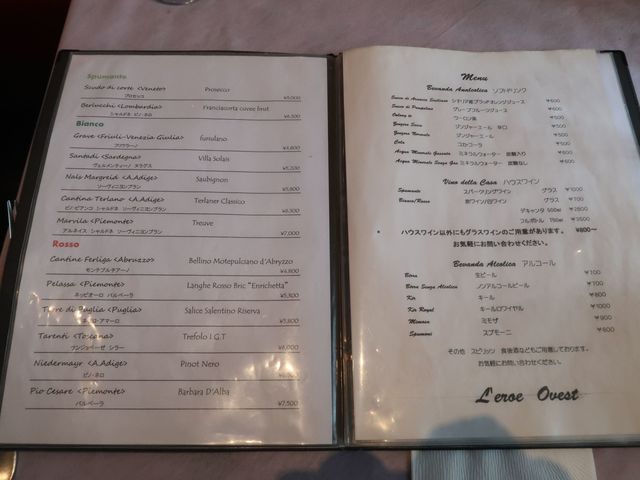 Spumante
Scudo di corte <Veneto> Prosecco
プロセッコ ¥5,000
Berlucchi <Lombardia> Franciacorta cuvee brut
シャルドネ ピノ・ネロ
Bianco
Grave <Friuli-Venezia Giulia> furrulano
Santadi <Sardegna> Villa Solais
ヴェルメンティーノ
Nals Margreid <A.Adige> Saubignon
ソーヴィニヨンブラン
Cantina Terlano <A.Adige> Terlaner Classico
ピノ・ビアンコ シャルドネ ソーヴィニヨンブラン
Marvila <Piemonte> Treuve
アルネイス シャルドネ ソーヴィニヨンブラン ¥7,000
Rosso
Cantine Ferliga <Abruzzo> Bellino Motepulciano d'Abryzzo
モンテプルチアーノ
Pelassa <Piemonte> Langhe Rosso Bric "Enrichetta"
ネッビオーロ バルベーラ
Torre di Puglia <Puglia> Salice Salentino Riserva
Tarenti <Toscana> Trefolo I.G.T
サンジョベーゼ シラー
Niedermayr <A.Adige> Pinot Nero
ピノ・ネロ
Pio Cesare <Piemonte> Barbara D'Alba
バルベーラ ¥7,500
Menu
Bevanda Analcolica ソフトドリンク
シチリア産ブラッドオレンジジュース
グレープフルーツジュース
Oolong te ウーロン茶
ジンジャーエール 辛口
ジンジャーエール
Cola コカコーラ
Acqua Minerale Gassata ミネラルウォーター 炭酸入り
Acqua Minerale Senza Gas ミネラルウォーター 炭酸なし
Vino della Casa ハウスワイン
Spumante スパークリングワイン グラス ¥1000
Bianco/Rosso 赤ワイン/白ワイン グラス ¥700
デキャンタ 500㎖
フルボトル 750㎖
* ハウスワイン以外にもグラスワインのご用意があります。 ¥800～
お気軽にお問い合わせください。
Bevanda Alcolica アルコール
Birra 生ビール
Birra Senza Alcolica ノンアルコールビール
Kir キール
Kir Royal キールロワイヤル ¥1000
Mimosa ミモザ
Spumoni スプモーニ
その他 スピリッツ 食後酒などもご用意しております。
お気軽にお問い合わせください。
L'eroe Ovest